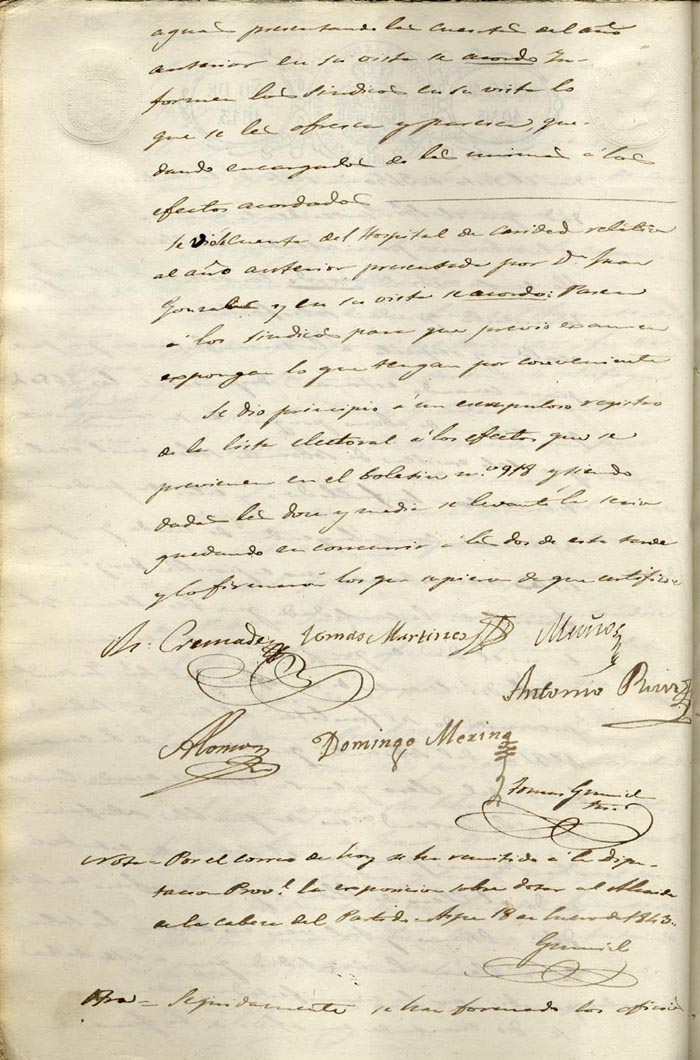 aguas presentando las cuentas del año
anterior en su vista se acordo In-
formen los Sindicos en su vista lo
que se les ofresca y paresca, que-
dando encargados de las mismas á los
efectos acordados
Se vió la Cuenta del Hospital de caridad relativa
al año anterior presentada por Dn. Juan
Gonzales y en su vista se acordo: Pasen
á los Sindicos para que previo examen
espongan lo que tengan por conveniente
Se dio principio á un escrupuloso registro
de la lista electoral á los efectos que se
previenen en el boletin no. 918 y siendo
dadas las doce y media se levantó la sesion
quedando en concurrir á las dos de esta tarde
y lo firmaron los que supieron de que certifico=
Cremades Tomas Martines Muños
Antonio
Alonso Domingo Mexina
Tomas Gumiel
Srio
Nota= Por el correo de hoy se ha remitido á la dipu-
tacion Provl. la exposicion sobre dotar al Alcaide
de la cabeza del Partido. Aspe 18 de Enero de 1843.
Gumiel
Otra= Seguidamente se han formado los oficios